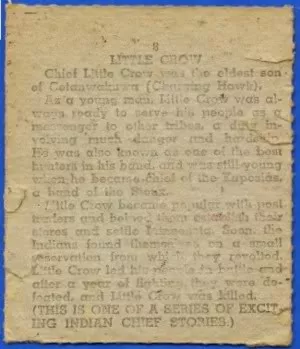 8
LITTLE CROW
Chief Little Crow was the oldest son
of Cetanwakuwa (Charging Hawk).
As a young man, Little Crow was al-
ways ready to serve his people as a
messenger to other tribes, a duty in-
volving much danger and hardship.
He was also known as one of the best
hunters in his band, and was still young
when he became chief of the Kaposias,
a band of the Sioux.
Little Crow became popular with post
traders and helped them establish their
stores and settle Minnesota. Soon, the
Indians found themselves on a small
reservation from which they revolted.
Little Crow led his people in battle and
after a year of fighting, they were de-
feated, and Little Crow was killed.
(THIS IS ONE OF A SERIES OF EXCIT-
ING INDIAN CHIEF STORIES.)